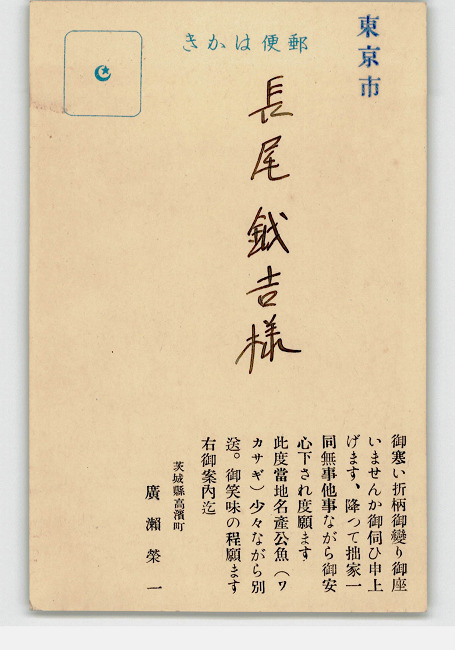 東京市
郵便はかき
長尾鉞吉様
御寒い折柄御變り御座
いませんか御伺ひ申上
げます、降つて拙家一
同無事他事ながら御安
心下され度願ます
此度當地名產公魚（ワ
カサギ）少々ながら別
送。御笑味の程願ます
右御案内迄
茨城縣高濱町
廣瀨榮一